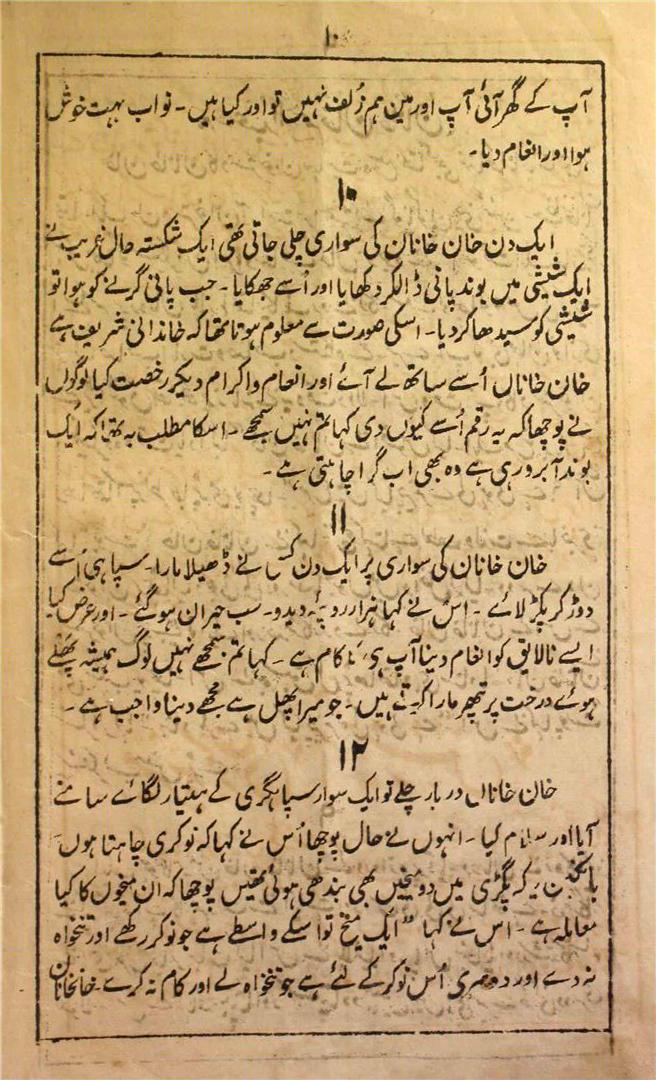 ۱۰
آپ کے گھر آئی آپ اور مین ہم زُلف نہیں تو اور کیا ہیں۔ نواب بہت خوش
ہوا اور انعام دیا۔
۱۰
ایک دن خان خانان کی سواری چلی جاتی تھی ایک شکستہ حال غریب نے
ایک شیشی میں بوند پانی ڈالکر دکھایا اور اُسے جھکایا۔ جب پانی گرنے کو ہوا تو
شیشی کو سیدھا کر دیا۔ اسکی صورت سے معلوم ہوتا تھا کہ خاندانی شریف ہے
خان خاناں اُسے ساتھ لے آئے اور انعام و اکرام دیکر رخصت کیا لوگوں
نے پوچھا کہ یہ رقم اُسے کیوں دی کہا تم نہیں سمجھے۔ اسکا مطلب یہ تھا کہ ایک
بوند آبرو رہی ہے وہ بھی اب گرا چاہتی ہے۔
۱۱
خان خانان کی سواری پر ایک دن کس نے ڈھیلا مارا۔ سپاہی اُسے
دوڑ کر پکڑ لائے۔ اس نے کہا ہزار روپئہ دیدو۔ سب حیران ہو گئے۔ اور عرض کیا
ایسے نالایق کو انعام دینا آپ ہی کا کام ہے۔ کہا تم سمجھے نہیں لوگ ہمیشہ پھلے
ہوئے درخت پر پتھر مارا کرتے ہیں۔ جو میرا پھل ہے مجھے دینا واجب ہے۔
۱۲
خان خاناں دربار چلے تو ایک سوار سپاہگری کے ہتیار لگائے سامنے
آیا اور سلام کیا۔ انہوں نے حال پوچھا اُس نے کہا کہ نوکری چاہتا ہوں
بانکپن یہ کہ پگڑی میں دو میخیں بھی بندھی ہوئی تھیں پوچھا کہ ان میخوں کا کیا
معاملہ ہے۔ اس نے کہا " ایک میخ تو اسکے واسطے ہے جو نوکر رکھے اور تنخواہ
نہ دے اور دوسری اُس نوکر کے لئے ہے جو تنخواہ لے اور کام نہ کرے۔ خانخانان